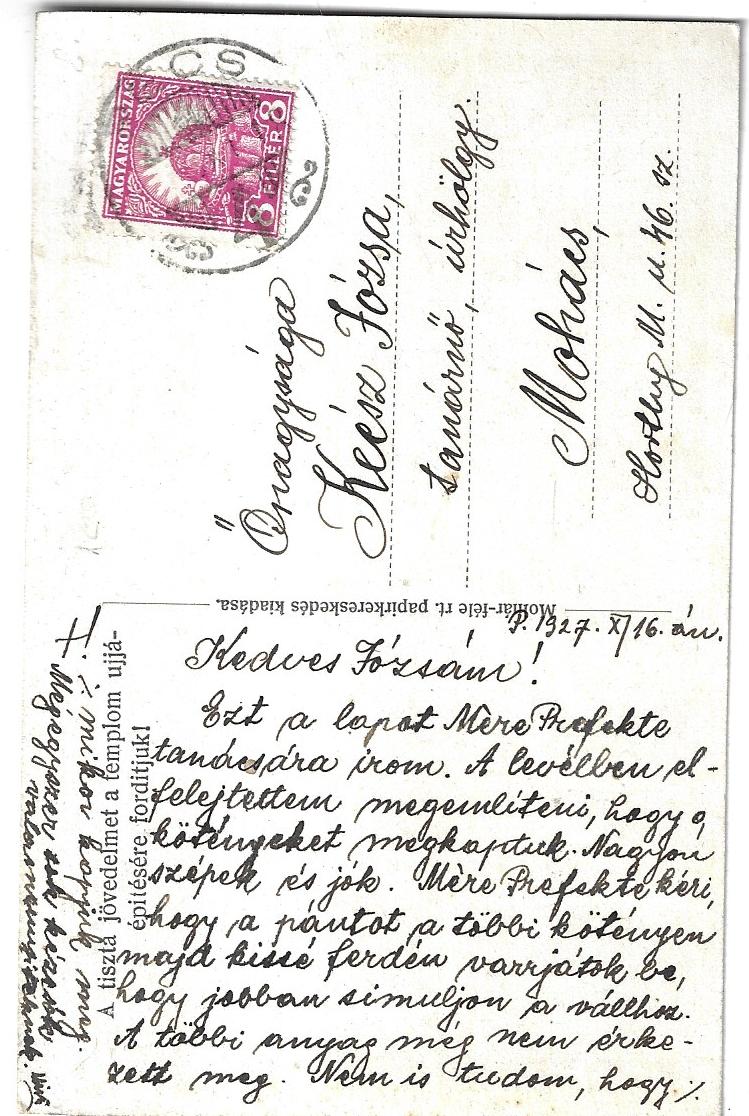 CS
MAGYARORSZÁG
8 FILLÉR 8
Őnagysága
Keész Józsa,
tanárnő, úrhölgy.
Mohács,
Horthy M. u. 46. sz.
Molnár-féle rt. papirkereskedés kiadása.
A tiszta jövedelmet a templom ujjá-
épitésére forditjuk!
P. 1927. XI/16. án.
Kedves Józsám!
Ezt a lapot Mère Prefekte
tanácsára irom. A levélben el-
felejtettem megemliteni, hogy a
kötényeket megkaptuk. Nagyon
szépek és jók. Mère Prefekte kéri,
hogy a pántot a többi kötényen
majd kissé ferdén varrjátok be,
hogy jobban simuljon a vállhoz.
A többi anyag még nem érke-
zett meg. Nem is tudom, hogy ·/.
·/. mikor kapjuk meg.
Megegyszer sok